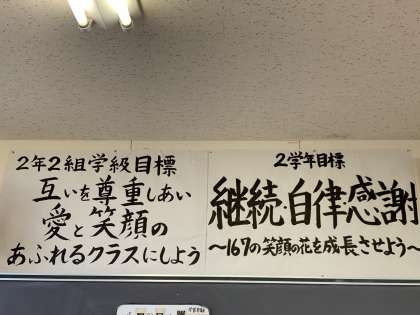 2年2組学級目標
互いを尊重しあい
愛と笑顔の
あふれるクラスにしよう
2学年目標
継続・自律・感謝
〜167の笑顔の花を成長させよう〜